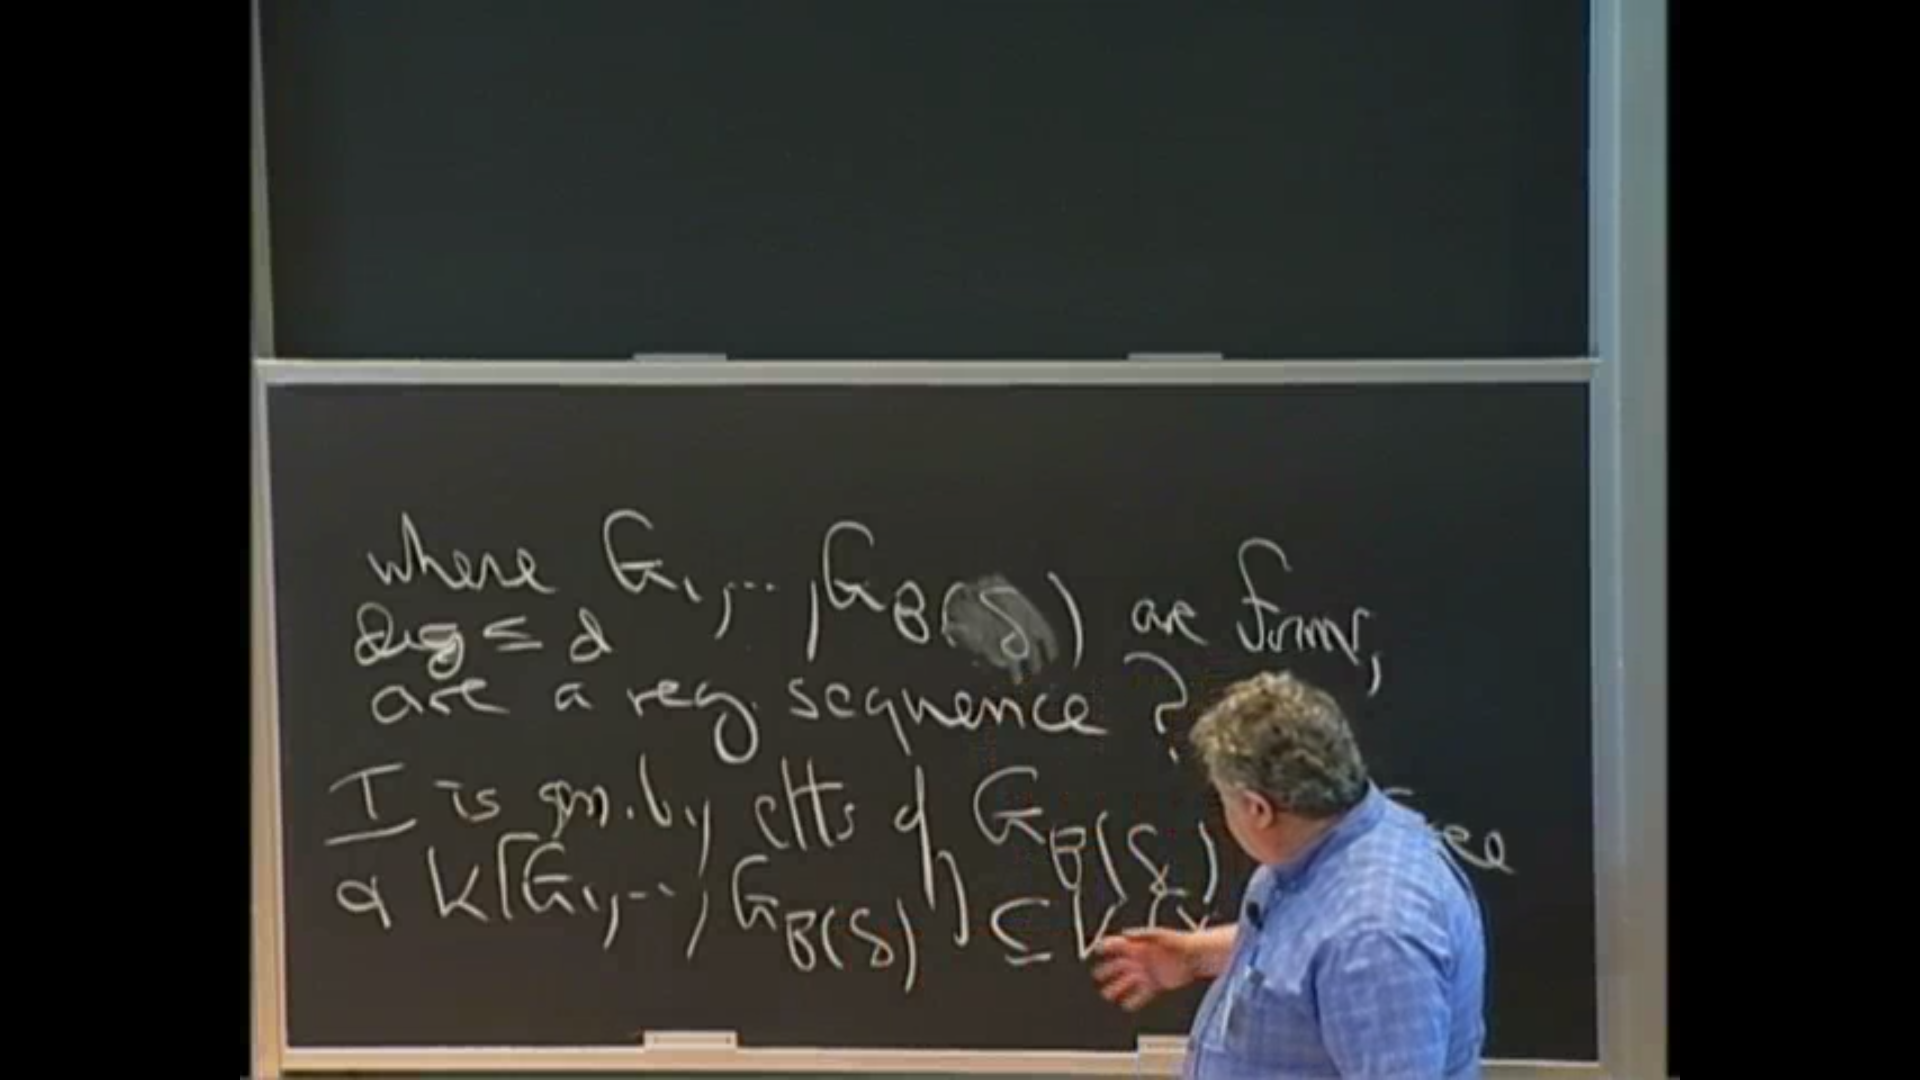 where G₁,...,G_B(δ) are forms,
deg ≤ d
are a reg. sequence?
I is gen. by elts of G_B(δ)
& K[G₁,...,G_B(δ)] ⊆